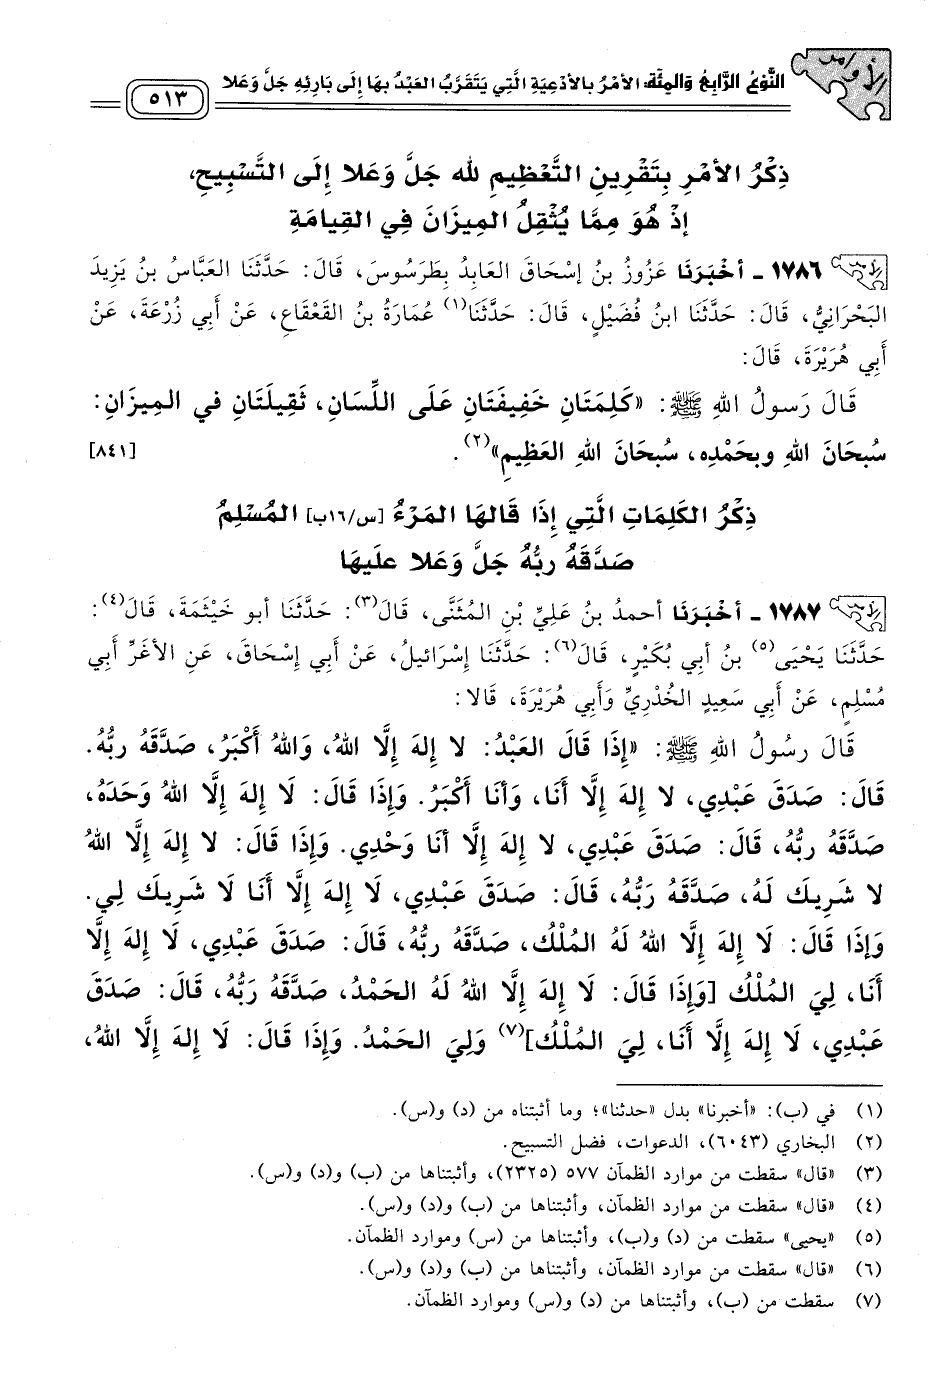 الأوامر
النَّوْعُ الرَّابِعُ وَالمِئَة: الأَمْرُ بِالأَدْعِيَةِ الَّتِي يَتَقَرَّبُ العَبْدُ بِهَا إِلَى بَارِئِهِ جَلَّ وَعَلَا
٥١٣
ذِكْرُ الأَمْرِ بِتَقْرِينِ التَّعْظِيمِ لله جَلَّ وَعَلا إِلَى التَّسْبِيحِ،
إِذْ هُوَ مِمَّا يُثْقِلُ المِيزَانَ فِي القِيَامَةِ
١٧٨٦ - أخْبَرَنَا عَزُوزُ بنُ إسْحَاقَ العَابِدُ بِطَرَسُوسَ، قَالَ: حَدَّثَنَا العَبَّاسُ بنُ يَزِيدَ
البَحْرَانِيُّ، قَالَ: حَدَّثَنَا ابنُ فُضَيْلٍ، قَالَ: حَدَّثَنَا(١) عُمَارَةُ بنُ القَعْقَاعِ، عَنْ أَبِي زُرْعَةَ، عَنْ
أَبِي هُرَيْرَةَ، قَالَ:
قَالَ رَسولُ اللهِ ﷺ: «كَلِمَتَانِ خَفِيفَتَانِ عَلَى اللِّسَانِ، ثَقِيلَتَانِ في المِيزَانِ:
سُبحَانَ اللهِ وبحَمْدِه، سُبحَانَ اللهِ العَظِيمِ»(٢). [٨٤١]
ذِكْرُ الكَلِمَاتِ الَّتِي إِذَا قَالهَا المَرْءُ [س/١٦ب] المُسْلِمُ
صَدَّقَهُ ربُّهُ جَلَّ وَعَلا علَيهَا
١٧٨٧ - أخْبَرَنَا أحمدُ بنُ عَلِيِّ بْنِ المُثَنَّى، قَالَ(٣): حَدَّثَنَا أبو خَيْثَمَةَ، قَالَ(٤):
حَدَّثَنَا يَحْيَى(٥) بنُ أبي بُكَيْرٍ، قَالَ(٦): حَدَّثَنَا إسْرَائيلُ، عَنْ أَبِي إسْحَاقَ، عَنِ الأغَرِّ أَبِي
مُسْلِمٍ، عَنْ أَبِي سَعِيدٍ الخُدْرِيِّ وَأَبِي هُرَيْرَةَ، قَالا:
قَالَ رسُولُ اللهِ ﷺ: «إِذَا قَالَ العَبْدُ: لا إِلهَ إلَّا اللهُ، وَاللهُ أَكْبَرُ، صَدَّقَهُ ربُّهُ.
قَالَ: صَدَقَ عَبْدِي، لا إِلهَ إِلَّا أَنَا، وَأنَا أَكْبَرُ. وَإِذَا قَالَ: لَا إِلهَ إِلَّا اللهُ وَحَدَهُ،
صَدَّقَهُ ربُّهُ، قَالَ: صَدَقَ عَبْدِي، لا إِلهَ إِلَّا أنَا وَحْدِي. وَإِذَا قَالَ: لا إِلهَ إِلَّا اللهُ
لا شَرِيكَ لَهُ، صَدَّقَهُ رَبُّهُ، قَالَ: صَدَقَ عَبْدِي، لَا إِلهَ إِلَّا أَنَا لَا شَرِيكَ لِي.
وَإذَا قَالَ: لَا إِلهَ إِلَّا اللهُ لَهُ المُلْكُ، صَدَّقَهُ ربُّهُ، قَالَ: صَدَقَ عَبْدِي، لَا إِلهَ إِلَّا
أَنَا، لِيَ المُلْكُ [وَإِذَا قَالَ: لَا إِلهَ إِلَّا اللهُ لَهُ الحَمْدُ، صَدَّقَهُ رَبُّهُ، قَالَ: صَدَقَ
عَبْدِي، لَا إِلهَ إِلَّا أَنَا، لِيَ المُلْكُ](٧) وَلِيَ الحَمْدُ. وَإِذَا قَالَ: لَا إِلهَ إِلَّا اللهُ،
(١) في (ب): «أخبرنا» بدل «حدثنا»؛ وما أثبتناه من (د) و(س).
(٢) البخاري (٦٠٤٣)، الدعوات، فضل التسبيح.
(٣) «قال» سقطت من موارد الظمآن ٥٧٧ (٢٣٢٥)، وأثبتناها من (ب) و(د) و(س).
(٤) «قال» سقطت من موارد الظمآن، وأثبتناها من (ب) و(د) و(س).
(٥) «يحيى» سقطت من (د) و(ب)، وأثبتناها من (س) وموارد الظمآن.
(٦) «قال» سقطت من موارد الظمآن، وأثبتناها من (ب) و(د) و(س).
(٧) سقطت من (ب)، وأثبتناها من (د) و(س) وموارد الظمآن.